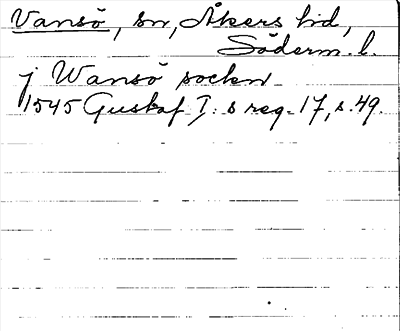 Vansö, sn, Åkers hd,
Söderm. l.
j Wansö socken
1545 Gustaf I:s reg. 17, s. 49.